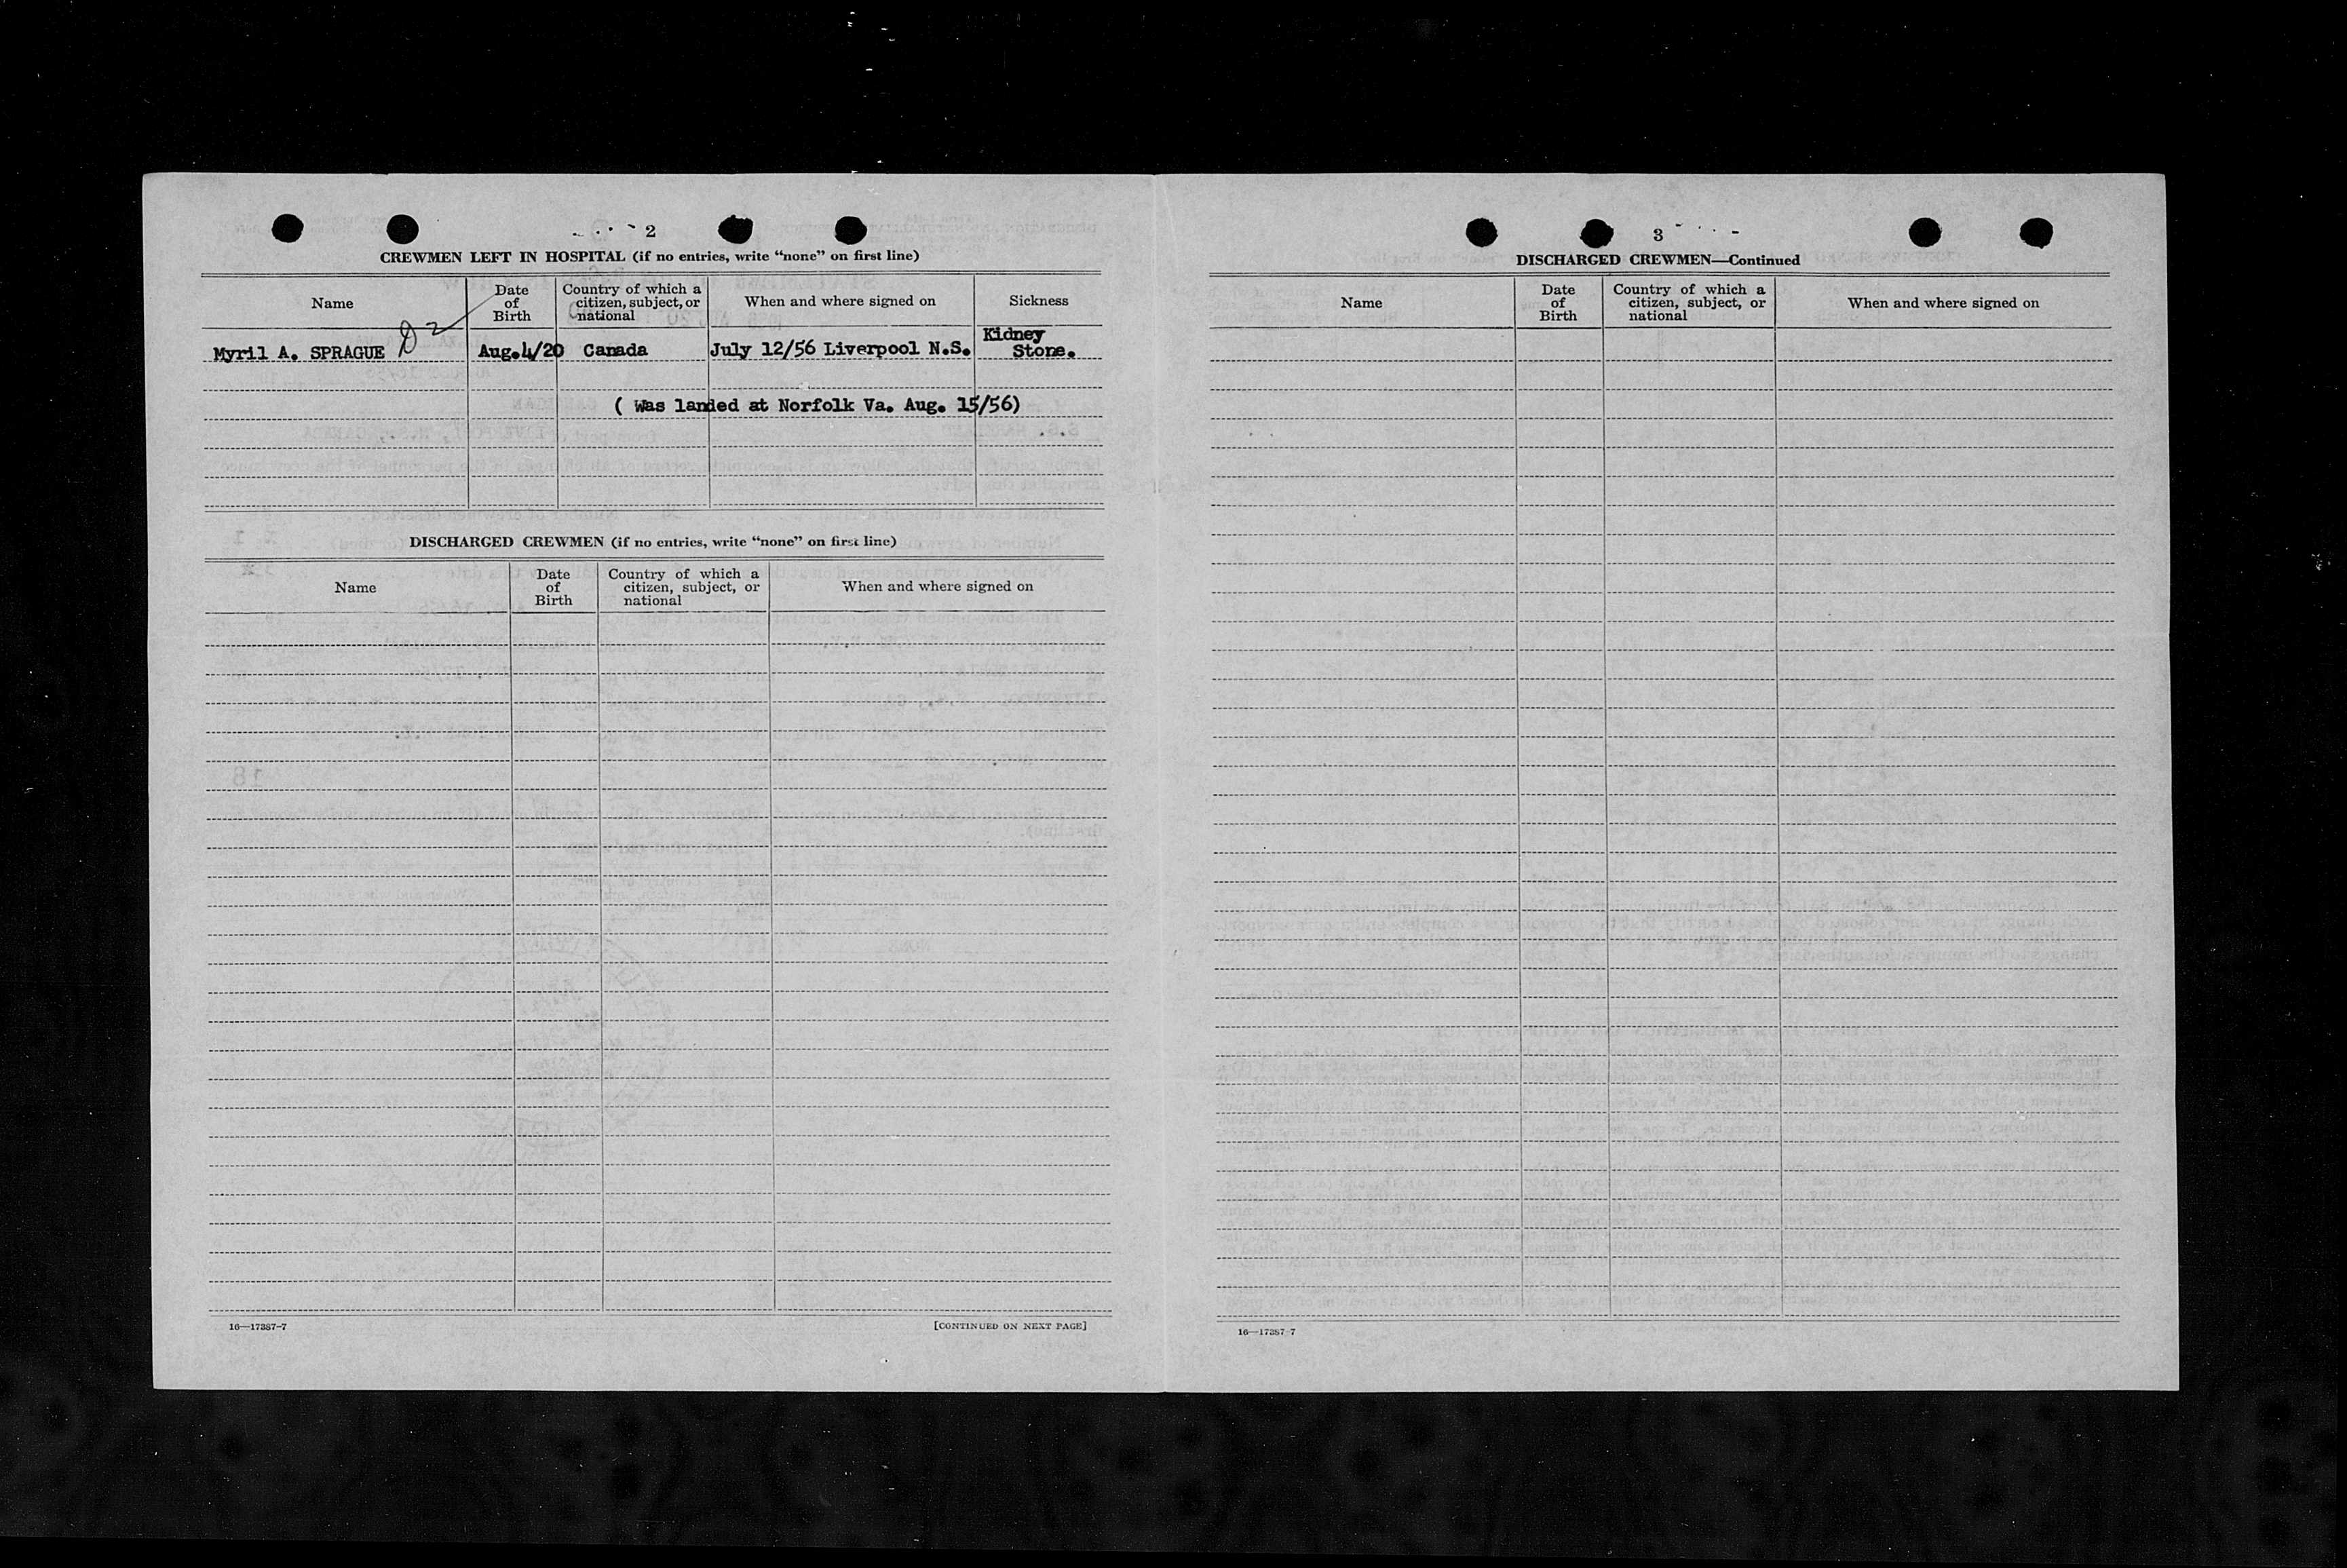 2
CREWMEN LEFT IN HOSPITAL (if no entries, write “none” on first line)
Name
Date of Birth
Country of which a citizen, subject, or national
When and where signed on
Sickness
Myril A. SPRAGUE D2 Aug.4/20 Canada July 12/56 Liverpool N.S. Kidney Stone.
( Was landed at Norfolk Va. Aug. 15/56)
DISCHARGED CREWMEN (if no entries, write “none” on first line)
Name
Date of Birth
Country of which a citizen, subject, or national
When and where signed on
16—17387-7
[CONTINUED ON NEXT PAGE]
3
DISCHARGED CREWMEN—Continued
Name
Date of Birth
Country of which a citizen, subject, or national
When and where signed on
16—17387-7